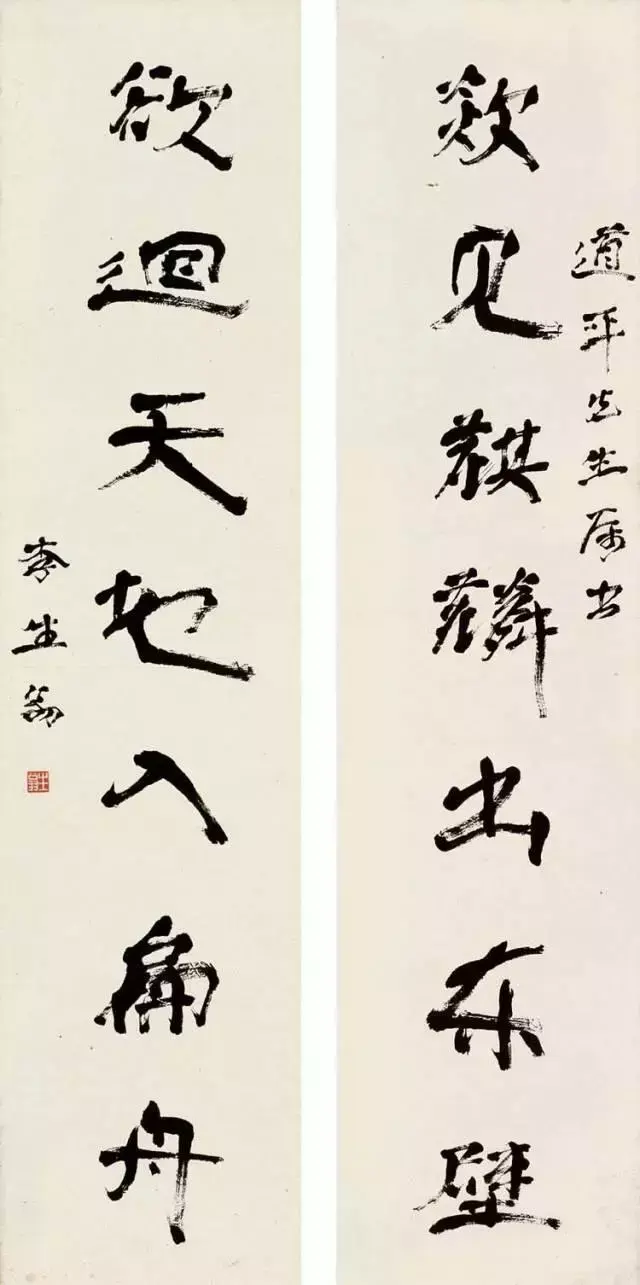 道平先生属书
欻见麒麟出东壁
欲迴天地入扁舟
李生翁
生翁